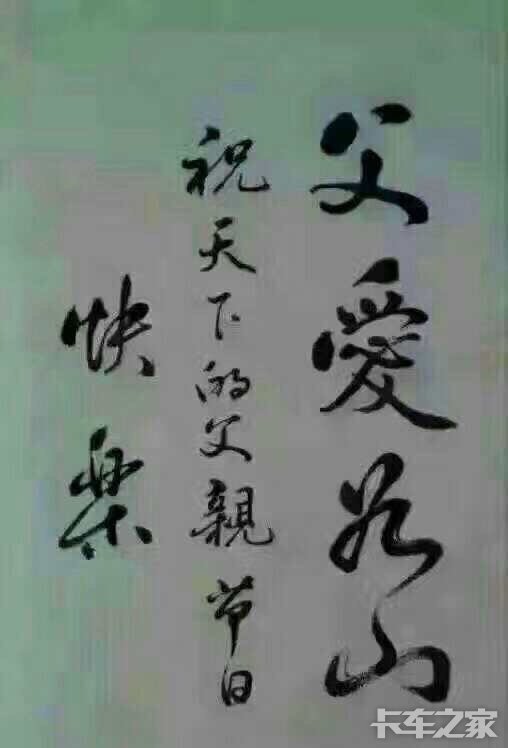 父愛如山
祝天下的父親节日
快樂
卡车之家